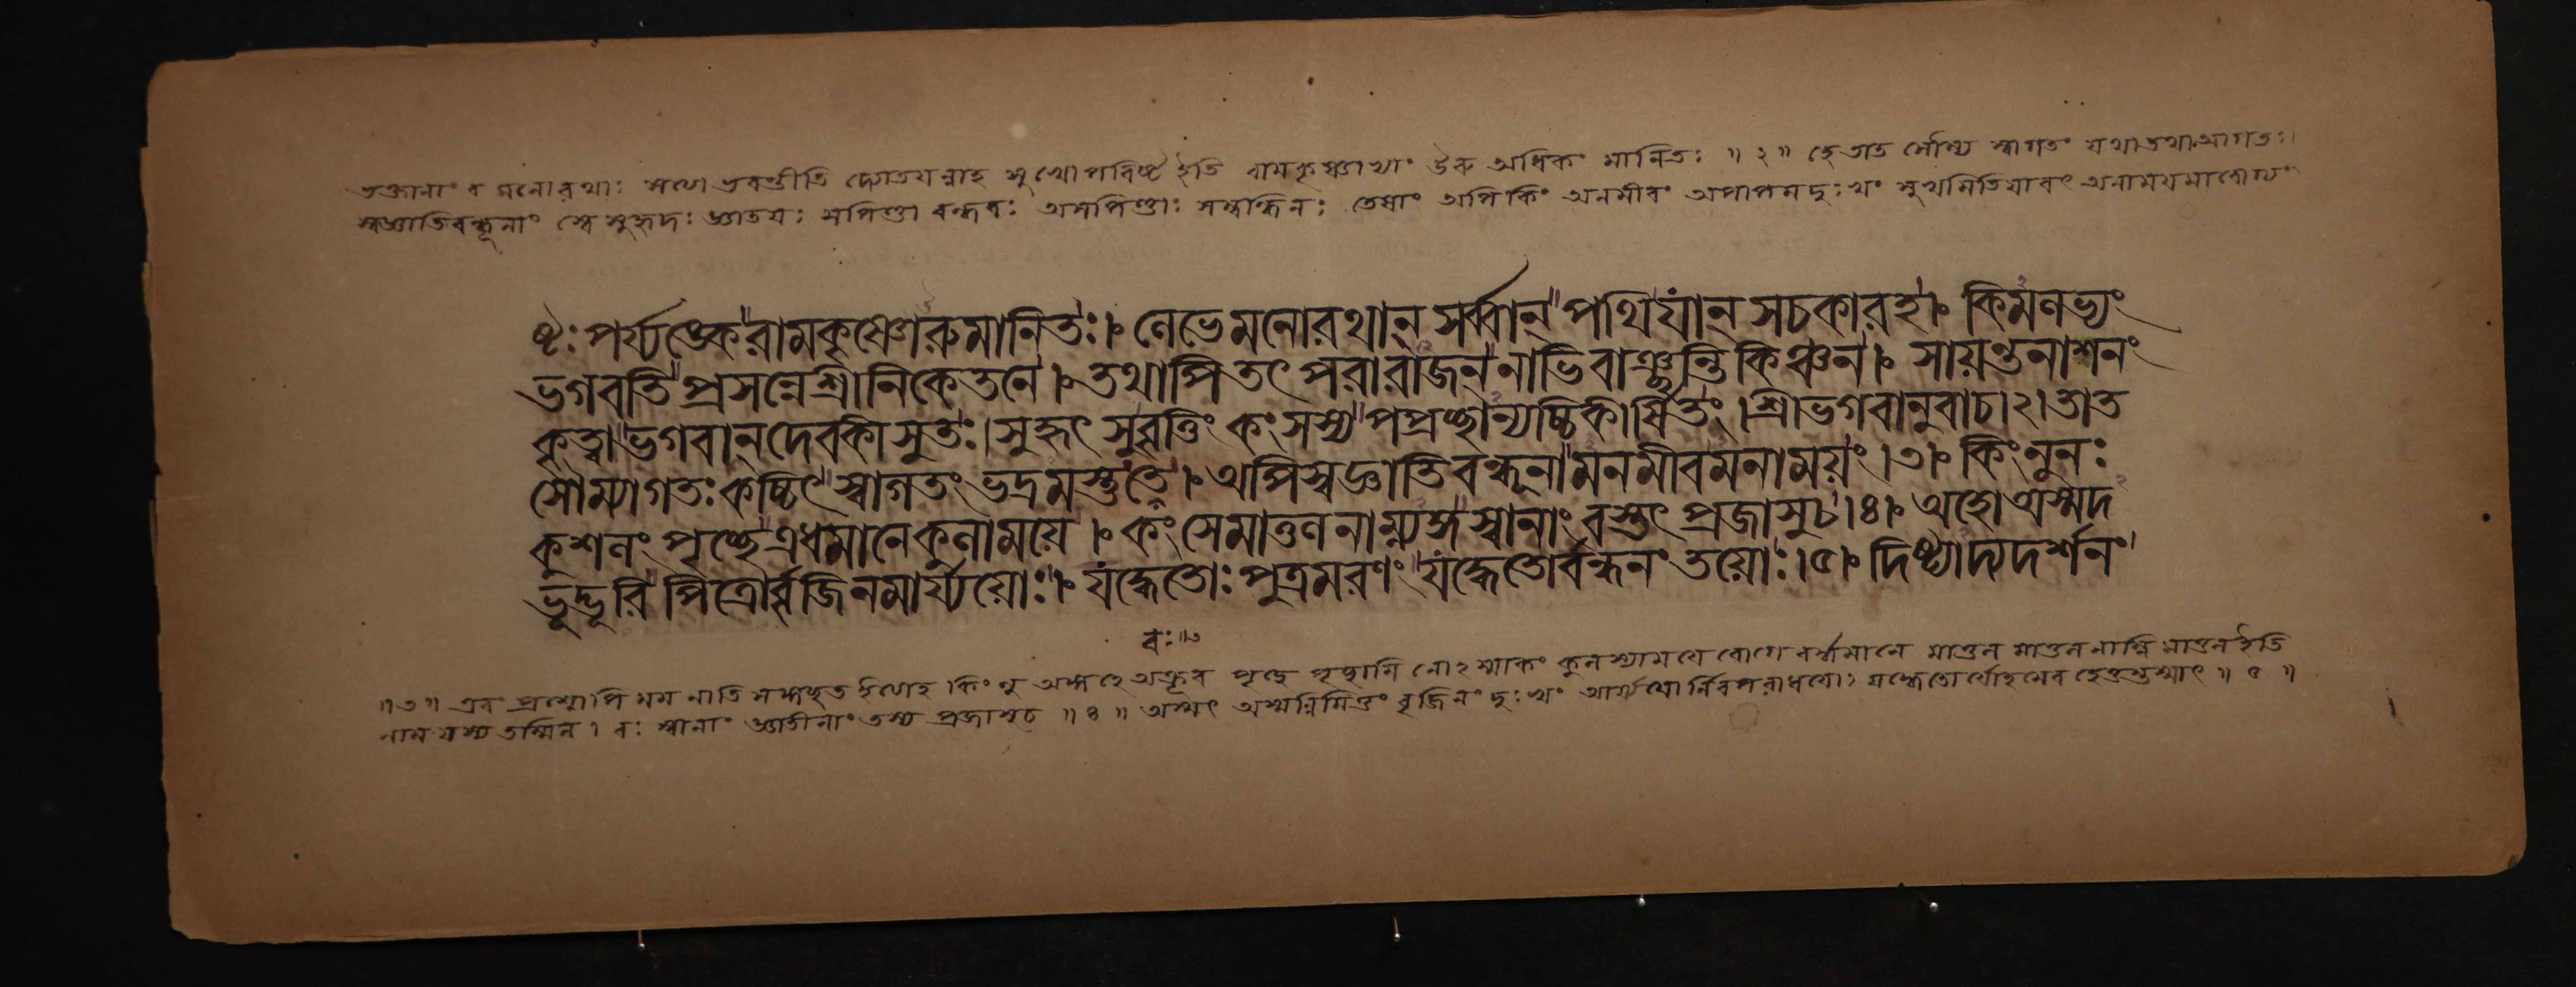 ভক্তানাং ব মনোরথাঃ সত্যে ভবন্তীতি দ্যোতয়ন্নাহ সুখোপবিষ্ট ইতি রামকৃষ্ণাভ্যাং উরু অধিকং মানিতঃ ॥ ২ ॥ হে তাত সৌম্য স্বাগতং যথা তথা আগতঃ।
স্বজ্ঞাতিবন্ধূনাং স্বে সুহৃদঃ জ্ঞাতয়ঃ সপিণ্ডা বন্ধবঃ অসপিণ্ডাঃ সম্বন্ধিনঃ তেষাং অপি কিং অনমীবং অপাপমদুঃখং সুখমিতিযাবৎ অনাময়মারোগ্যং
ষ্টঃ পর্য্যঙ্কে রামকৃষ্ণোরুমানিতঃ। লেভে মনোরথান্ সর্ব্বান্ পথি যান্ স চকার হ। কিমলভ্যং
ভগবতি প্রসন্নে শ্রীনিকেতনে। তথাপি তৎপরা রাজন্ নাভিবাঞ্ছন্তি কিঞ্চন। সায়ন্তনাশনং
কৃত্বা ভগবান্ দেবকীসুতঃ। সুহৃৎসু বৃত্তিং কংসস্য পপ্রচ্ছান্যচ্চিকীর্ষিতং। শ্রীভগবানুবাচ।২। তাত
সৌম্যাগতঃ কচ্চিৎ স্বাগতং ভদ্রমস্তু তে। অপি স্বজ্ঞাতিবন্ধূনামনমীবমনাময়ং।৩। কিংনুনঃ
কুশলং পৃচ্ছে এধমানে কুলাময়ে। কংসে মাতুলনাম্ন্যঙ্গ স্বানাং বস্তৎপ্রজাসু চ।৪। অহো অস্মদ
ভূদ্ভূরি পিত্রোর্বৃজিনমার্য্যয়োঃ। যদ্ধেতোঃ পুত্রমরণং যদ্ধেতোর্বন্ধনং তয়োঃ।৫। দিষ্ট্যাদ্য দর্শনং
বঃ॥
॥৩॥ এবং প্রশ্নোপি মম নাতি ইত্যাহ কিং নু অঙ্গ হে অক্রূর পৃচ্ছে পৃচ্ছামি নোঽস্মাকং কুলস্যাময়ে রোগে বর্ধমানে মাতুল মাতুল নাম্নি মাতুল ইতি
নাম যস্য তস্মিন। বঃ স্বানাং জ্ঞাতীনাং তস্য প্রজাসুচ ॥ ৪ ॥ অস্মৎ অস্মন্নিমিত্তং বৃজিনং দুঃখং আর্য্যয়োর্নিরপরাধয়োঃ যদ্ধেতোর্যোহমেব হেতুস্তস্মাৎ ॥ ৫ ॥